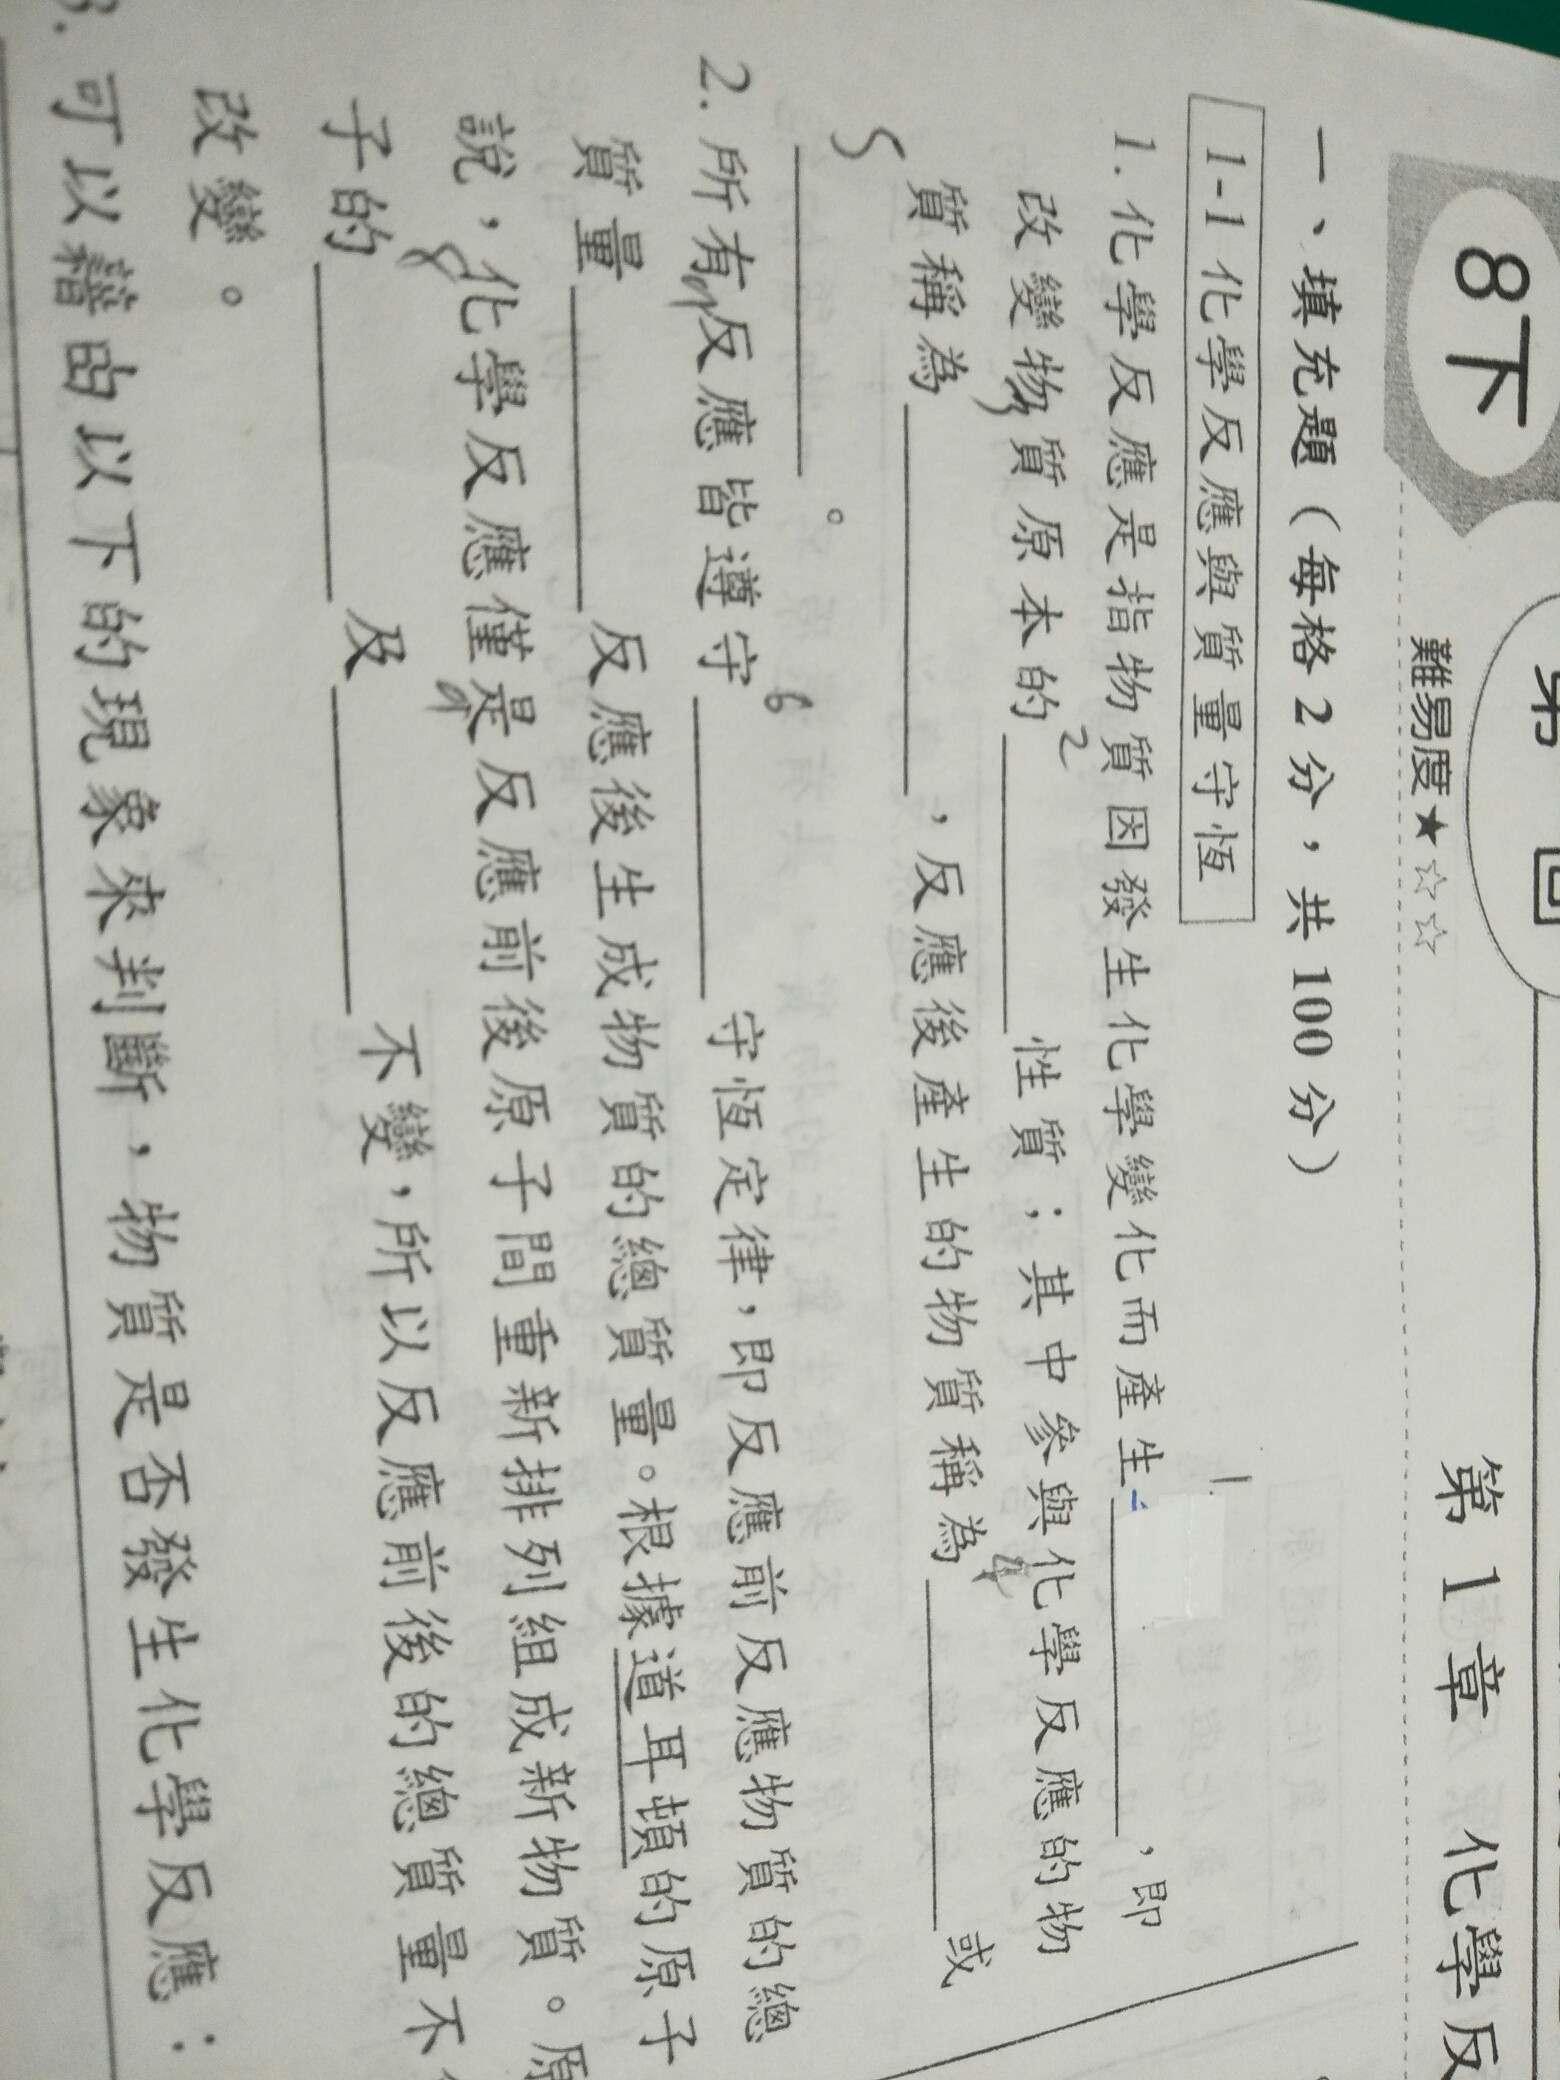 8下
第
回
難易度★☆☆
第 1 章 化學反
一、填充題（每格 2 分，共 100 分）
1-1 化學反應與質量守恆
1
1. 化學反應是指物質因發生化學變化而產生＿＿＿＿，即
2
改變物質原本的＿＿＿＿性質；其中參與化學反應的物
3 4
質稱為＿＿＿＿，反應後產生的物質稱為＿＿＿＿或
5
＿＿＿＿。
6
2. 所有反應皆遵守＿＿＿＿守恆定律，即反應前反應物質的總
質量＿＿＿＿反應後生成物質的總質量。根據道耳頓的原子
說，化學反應僅是反應前後原子間重新排列組成新物質。原
8
子的＿＿＿＿及＿＿＿＿不變，所以反應前後的總質量不
改變。
3. 可以藉由以下的現象來判斷，物質是否發生化學反應：